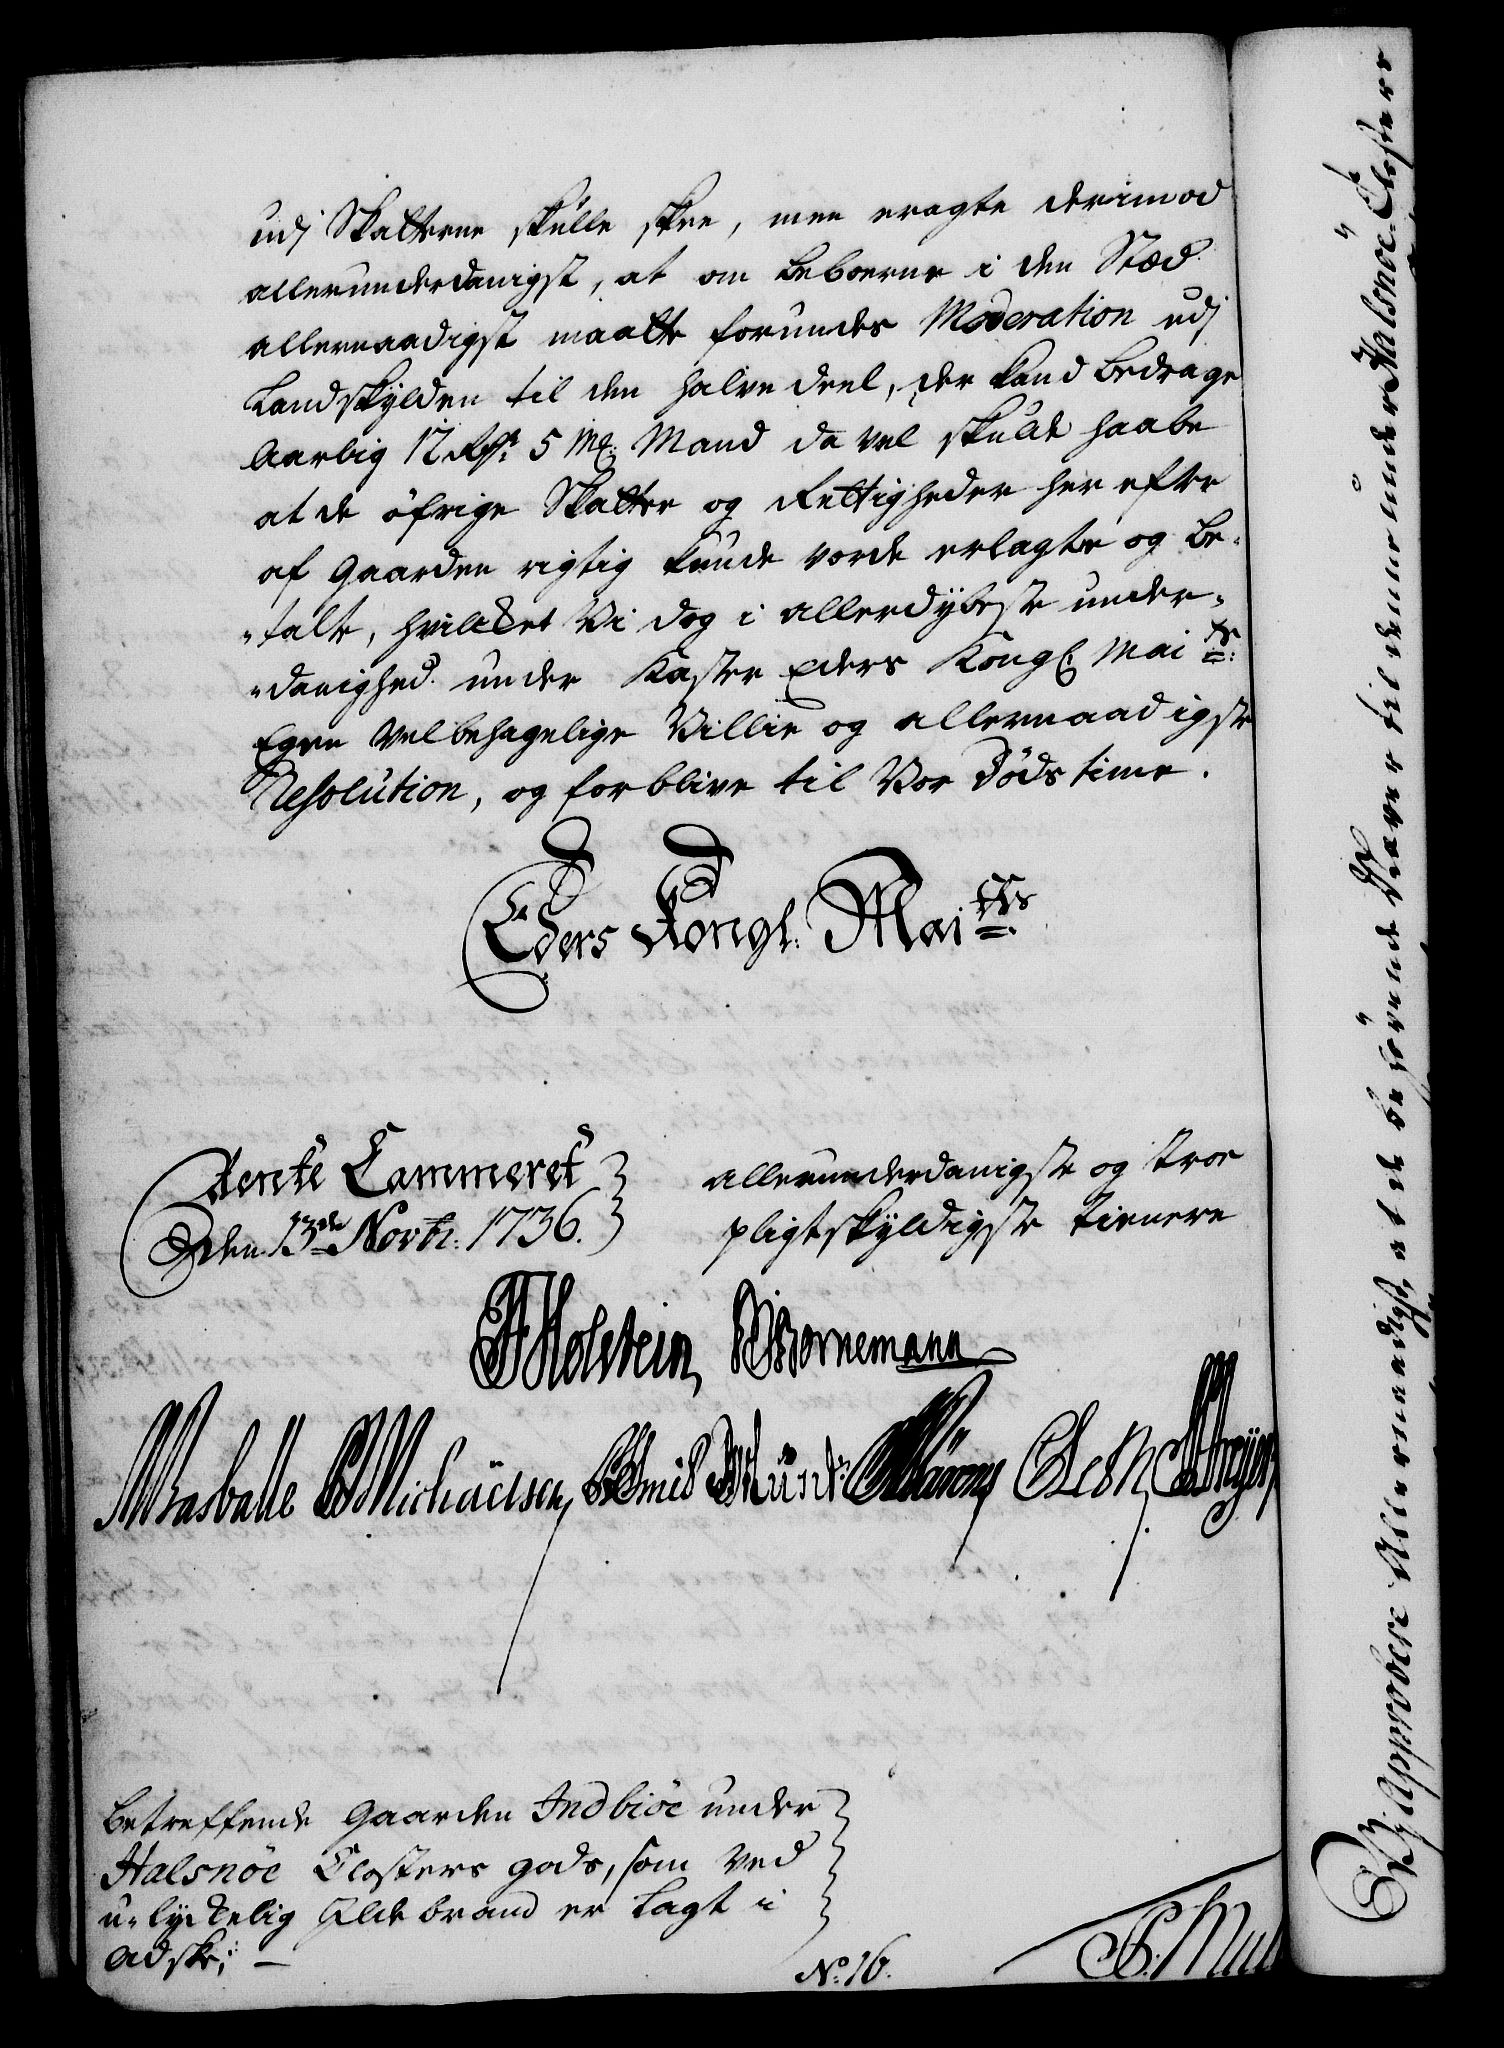 udj Skatterne skulle skee, men eragte derimod
allerunderdanigst, at om beboerne i den Stæd
allernaadigst maatte forundes Moderation udj
Landskylden til den halve deel, der kand bedrage
Aarlig 12 Rdr. 5 Mk. Mand da vel skulde haabe
at de öfrige Skatter og Rettigheder her efter
af Gaarden rigtig kunde vorde erlagte og be-
-talt, hvilcket Vi dog i allerdybeste under-
-danighed under kaster Eders Kongl. Mai ts:
Egen Velbehagelige Villie og allernaadigste
Resolution, og forblive til Vor Dödstime.
Eders Kongl. Mai tts
Rente Cammeret
den 13de Novbr. 1736.
allerunderdanigste og troe
pligtskyldigste tienere
Holstein, Bornemann
Basballe Michaelsen, Munk
Betreffende Gaarden Indbiöe under
Halsnöe Closters gods, som ved
u-lyckelig Ildebrand er lagt i
Adske; —
No. 16.
Wj Approbere Allernaadigst, at de behövende Træer til denne under Halsnöe Closter